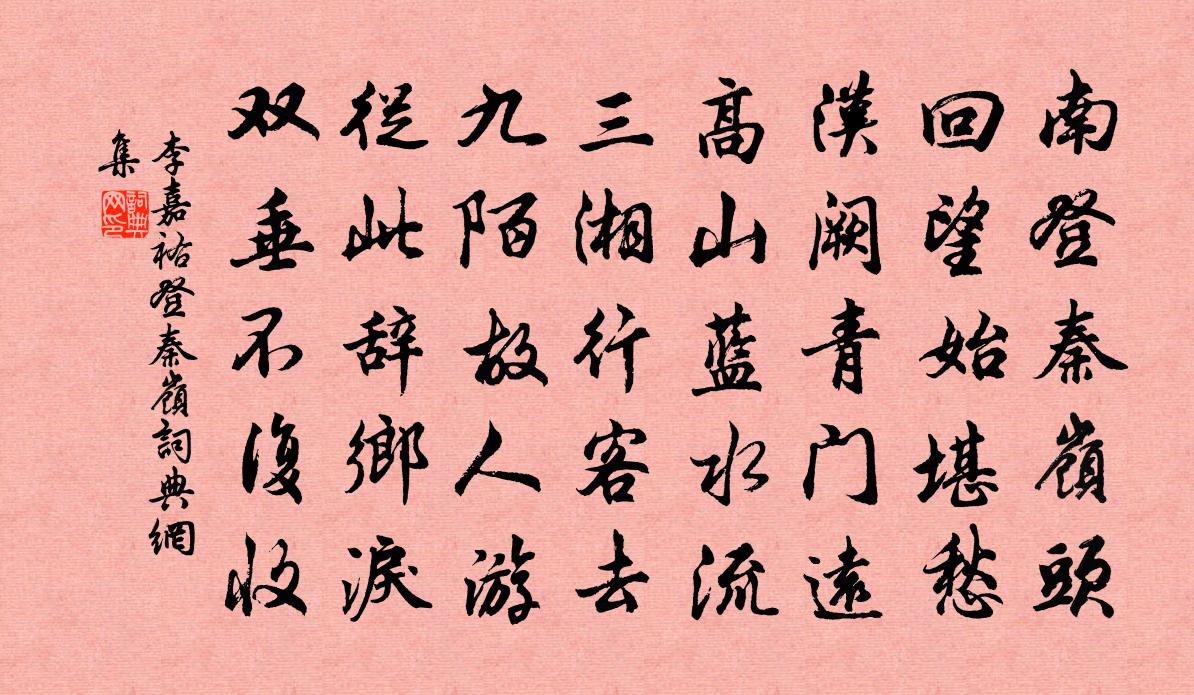 南登秦嶺頭
回望始堪愁
漢闕青门遠
高山藍水流
三湘行客去
九陌故人游
從此辞鄉淚
双垂不復收
李嘉祐登秦嶺詞典網
集
詞典
网印